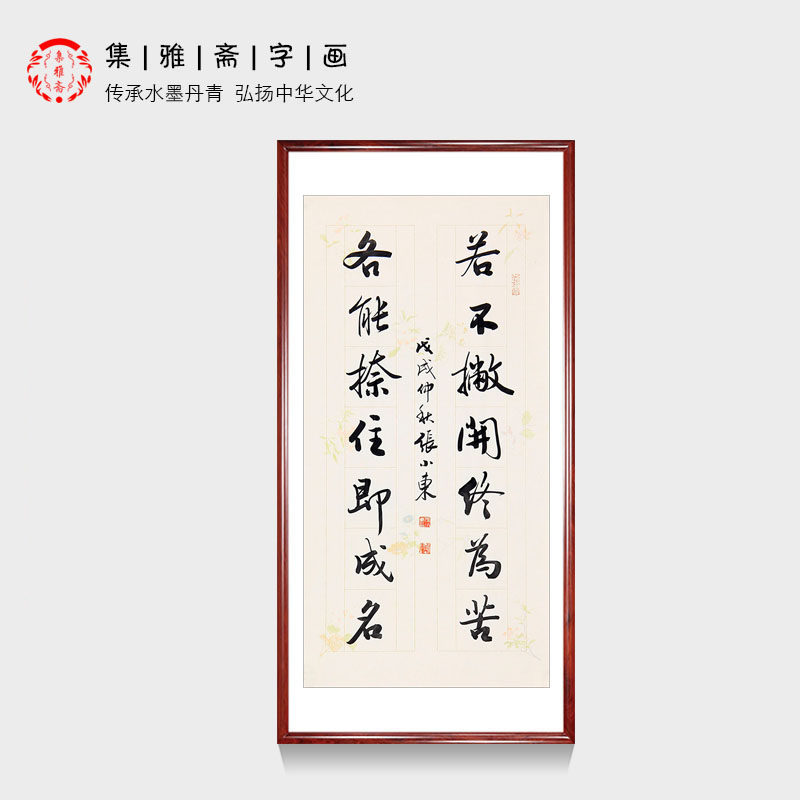 集|雅|斋|字|画
传承水墨丹青 弘扬中华文化
集雅斋
若不撇開终為苦
各能捺住即成名
戊戌仲秋張小東